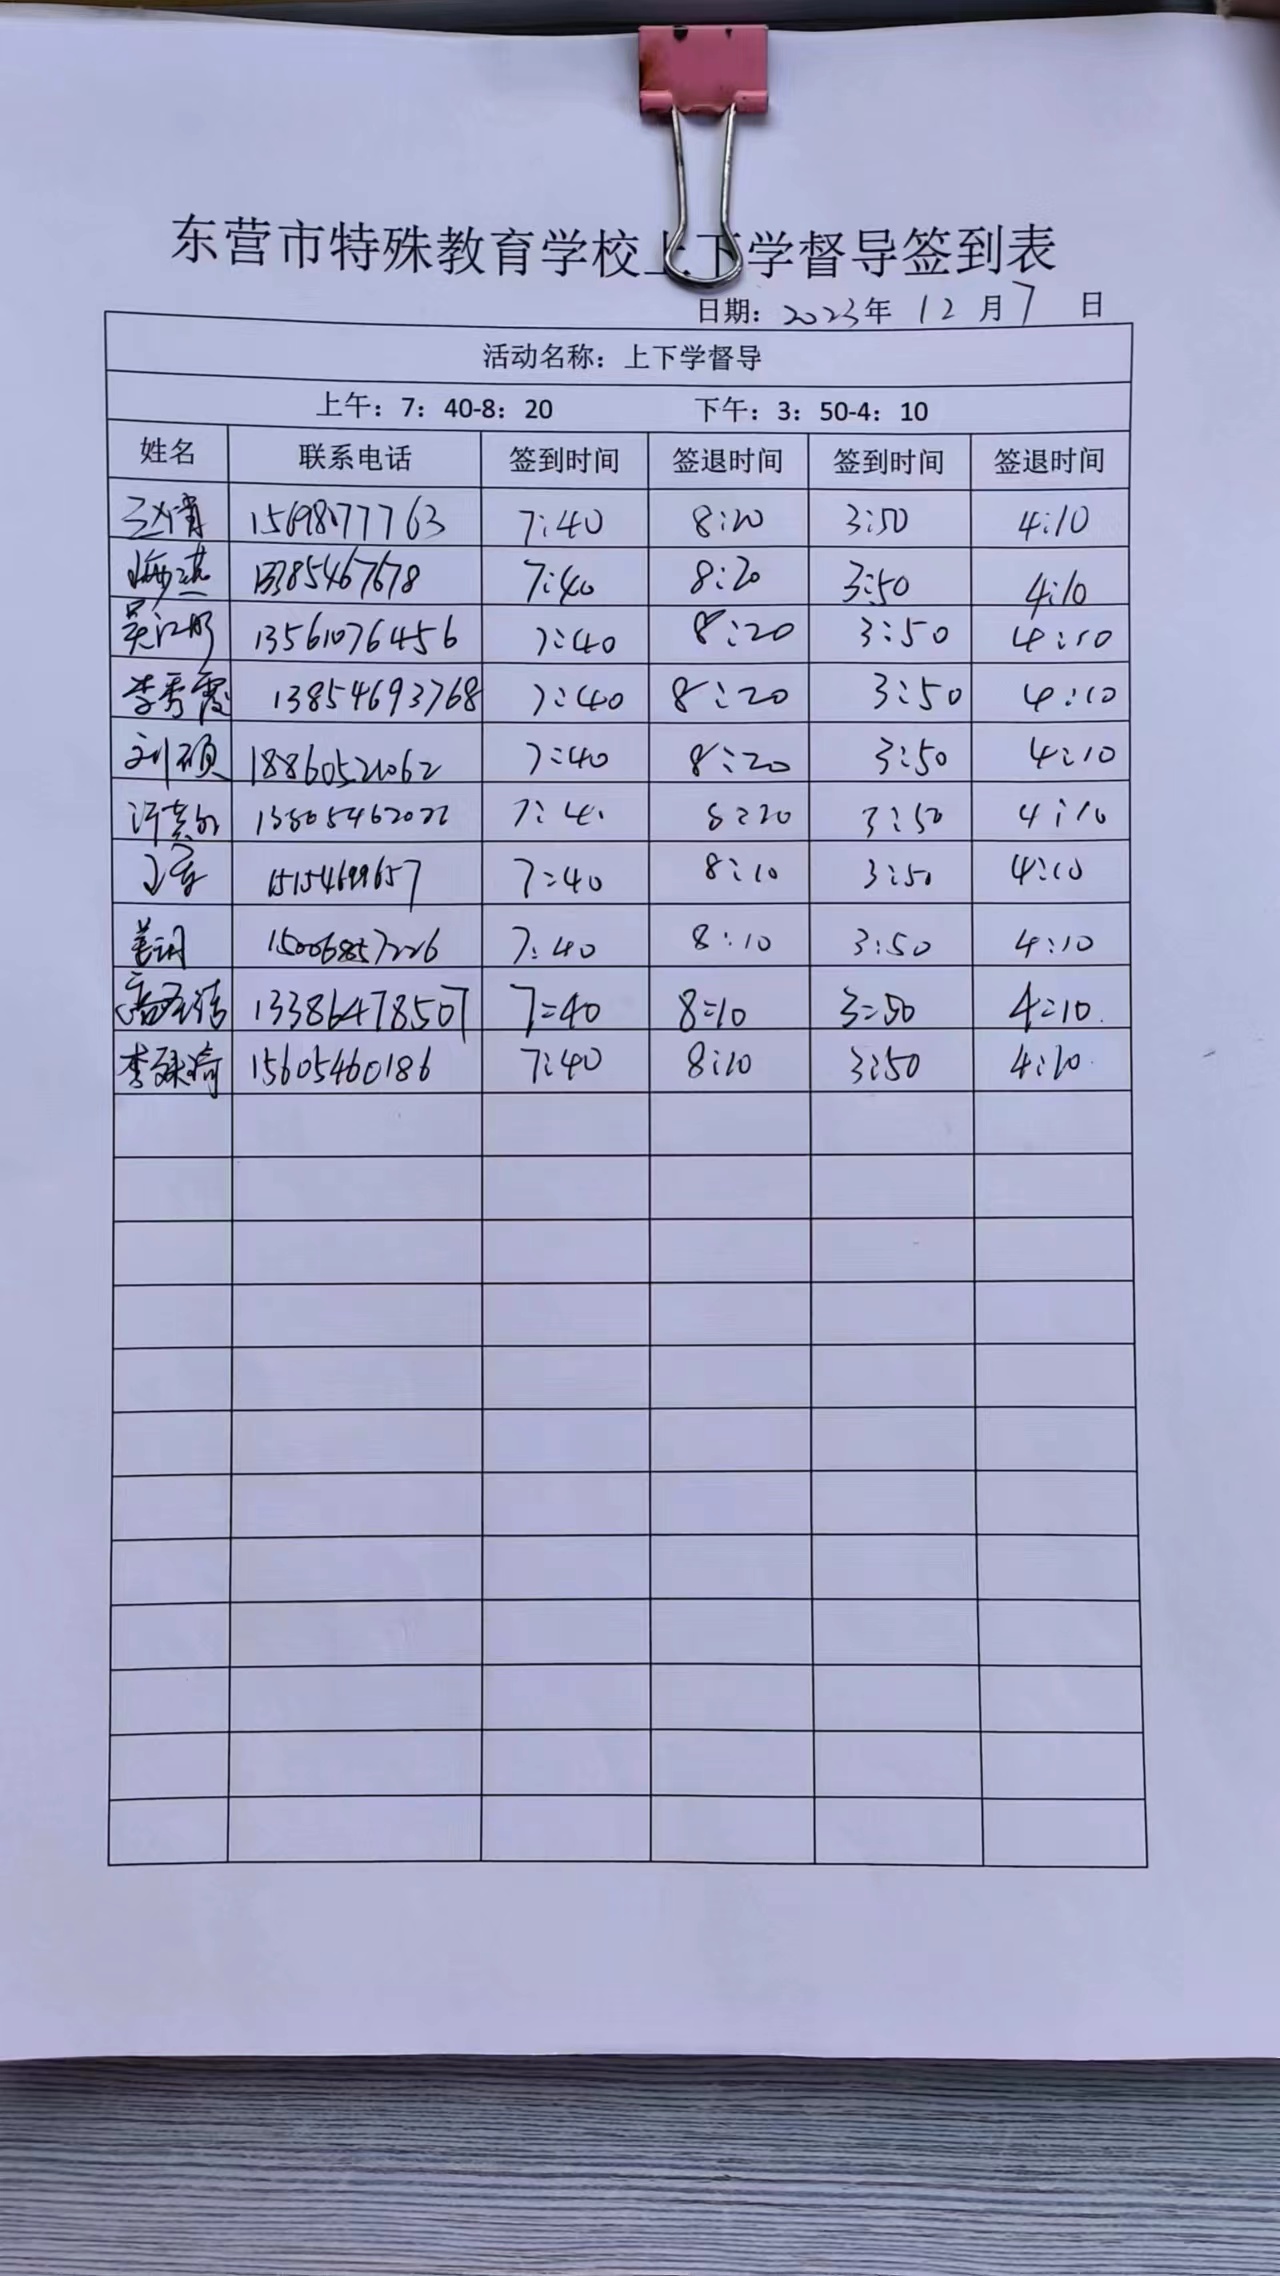 东营市特殊教育学校上下学督导签到表
日期：2023年 12 月 7 日
活动名称：上下学督导
上午：7：40-8：20 下午：3：50-4：10
姓名 联系电话 签到时间 签退时间 签到时间 签退时间
15698177763 7:40 8:20 3:50 4:10
7:40 8:20 3:50 4:10
13561076456 7:40 8:20 3:50 4:10
李秀霞 13854693768 7:40 8:20 3:50 4:10
刘硕 18860521062 7:40 8:20 3:50 4:10
8:20 3:50 4:10
7:40 8:10 3:50 4:10
15006857226 7:40 8:10 3:50 4:10
13386478507 7:40 8:10 3:50 4:10
15605460186 7:40 8:10 3:50 4:10